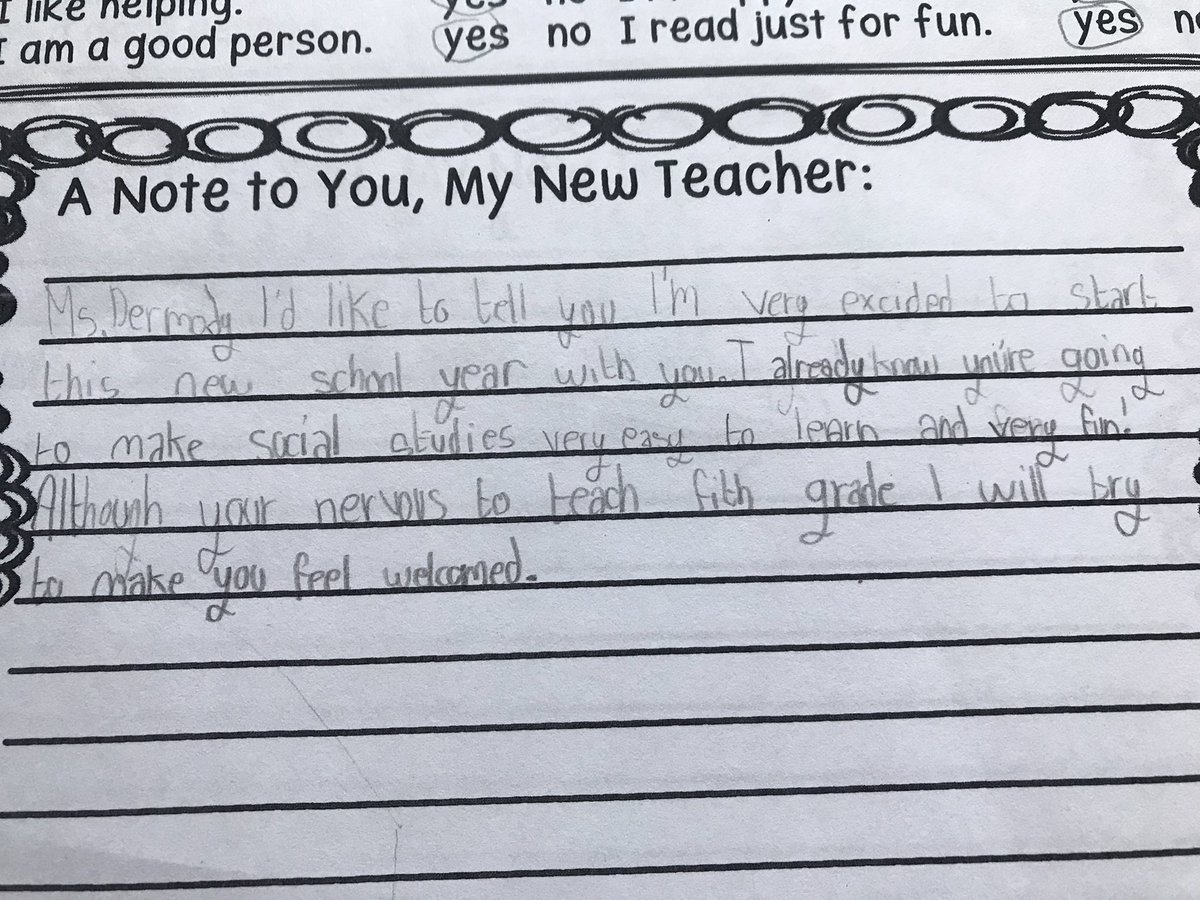 I like helping.
I am a good person. yes no I read just for fun. yes
A Note to You, My New Teacher:
Ms. Dermody I'd like to tell you I'm very excided to start
this new school year with you. I already know you're going
to make social studies very easy to learn and very fun!
Although your nervous to teach fith grade I will try
to make you feel welcomed.